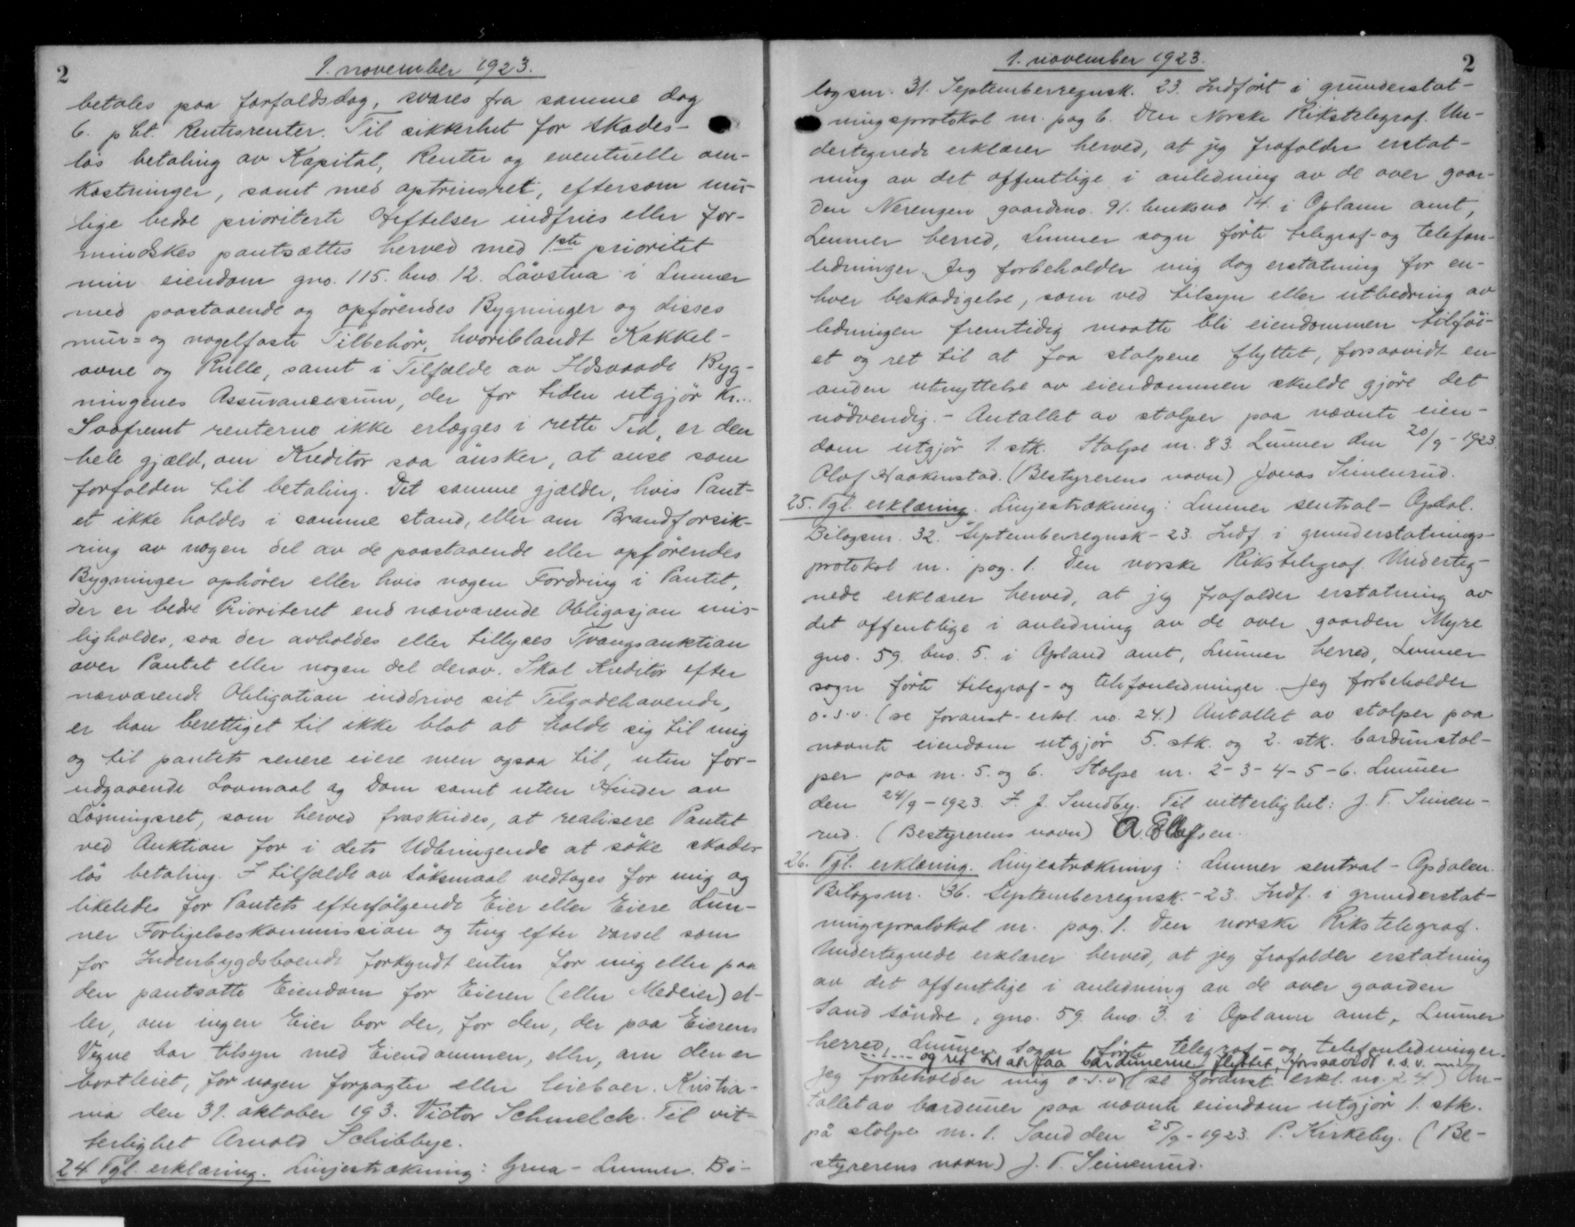 2
1. november 1923.
betales paa forfaldsdag, svares fra samme dag
6. p ct. Rentesrenter. Til sikkerhet for skades-
lös betaling av Kapital, Renter og eventuelle om-
kostninger, samt med optrinsret, eftersom mu-
lige bedre prioriterte Heftelser indfries eller for-
mindskes pantsættes herved med 1ste prioritet
min eiendom gno. 115. bno 12. Lövstua i Lunner
med paastaaende og opförendes Bygninger og disses
mur- og nagelfaste Tilbehör, hvoriblandt Kakkel-
ovne og Rulle, samt i Tilfælde av Ildsvaade Byg-
ningenes Assurancesum, der for tiden utgjör Kr...
Saafremt renterne ikke erlægges i rette Tid, er den
hele gjæld, om Kreditor saa önsker, at anse som
forfalden til betaling. Det samme gjælder, hvis Pant-
et ikke holdes i samme stand, eller om Brandforsik-
ring av nogen del av de paastaaende eller opförendes
Bygninger ophörer eller hvis nogen Fordring i Pantet,
der er bedre Prioriteret end nærværende Obligasjon mis-
ligholdes, saa der avholdes eller tillyses Tvangsauktion
over Pantet eller nogen del derav. Skal Kreditor efter
nærværende Obligation inddrive sit Tilgodehavende,
er han berettiget til ikke blot at holde sig til mig
og til pantets senere eiere men ogsaa til, uten for-
udgaaende Lovmaal og Dom samt uten Hinder av
Lösningsret, som herved fraskrides, at realisere Pantet
ved Auktion for i dets Udbringende at söke skades-
lös betaling. I tilfælde av söksmaal vedtages for mig og
likeledes for Pantets efterfölgende Eier eller Eiere Lun-
ner Forligelseskommission og ting efter varsel som
for Indenbygdsboende forkyndt enten for mig eller paa
den pantsatte Eiendom for Eieren (eller Medeier) el-
ler, om ingen Eier bor der, for den, der paa Eierens
Vegne har tilsyn med Eiendommen, eller, om den er
bortleiet, for nogen forpagter eller leieboer. Kristia-
nia den 31. oktober 193. Victor Schmelck. Til vit-
terlighet Arnold Schibbye.
24 Tgl. erklæring. Linjestrækning: Grua - Lunner. Bi-
2
1. november 1923.
lagsnr. 31. Septemberregnsk. 23. Indfört i grunderstat-
ningsprotokol nr. pag 6. Den Norske Rikstelegraf. Un-
dertegnede erklærer herved, at jeg frafalder erstat-
ning av det offentlige i anledning av de over gaar-
den Nerengen gaardsno. 91. bruksno 14. i Oplann amt,
Lunner herred, Lunner sogn förte telegraf- og telefon-
ledninger. Jeg forbeholder mig dog erstatning for en-
hver beskadigelse, som ved tilsyn eller utbedring av
ledningen fremtidig maatte bli eiendommen tilföi-
et og ret til at faa stolpene flyttet, forsaavidt en
anden utnyttelse av eiendommen skulde gjöre det
nödvendig. - Antallet av stolper paa nævnte eien-
dom utgjör 1. stk. Stolpe nr. 83. Lunner den 20/9 - 1923.
Olof Haakenstad. (Bestyrerens navn) Jonas Simenrud.
25. Tgl. erklæring. Linjestrækning: Lunner sentral - Opdal.
Bilagsnr. 32. Septemberregnsk - 23. Indf. i grunderstatnings-
protokol nr. pag. 1. Den norske Rikstelegraf. Underteg-
nede erklærer herved, at jeg frafalder erstatning av
det offentlige i anledning av de over gaarden Myre
gno. 59. bno. 5. i Opland amt, Lunner herred, Lunner
sogn förte telegraf- og telefonledninger. Jeg forbeholder
o.s.v. (se foranst. erkl. no. 24.) Antallet av stolper paa
nævnte eiendom utgjör 5. stk. og 2. stk. bardunstol-
per paa nr. 5. og 6. Stolpe nr. 2-3-4-5-6. Lunner
den 24/9 - 1923. F. J. Sundby. Til vitterlighet: J. T. Simen-
rud. (Bestyrerens navn) A Ellefsen.
26. Tgl. erklæring. Linjestrækning: Lunner sentral - Opdalen.
Bilagsnr. 36. Septemberregnsk. - 23. Indf. i grunderstat-
ningsprotokol nr. pag. 1. Den norske Rikstelegraf.
Undertegnede erklærer herved, at jeg frafalder erstatning
av det offentlige i anledning av de over gaarden
Sand söndre, gno. 59. bno. 3. i Oplann amt, Lunner
herred, Lunner sogn förte telegraf- og telefonledninger.
og ret til at faa bardunerne flyttet, forsaavidt o.s.v.
Jeg forbeholder mig o.s.v. (se foranst. erkl. no. 24.) An-
tallet av barduner paa nævnte eiendom utgjör 1. stk.
på stolpe nr. 1. Sand den 25/9 - 1923. P. Kirkeby. (Be-
styrerens navn) J. T. Simenrud.